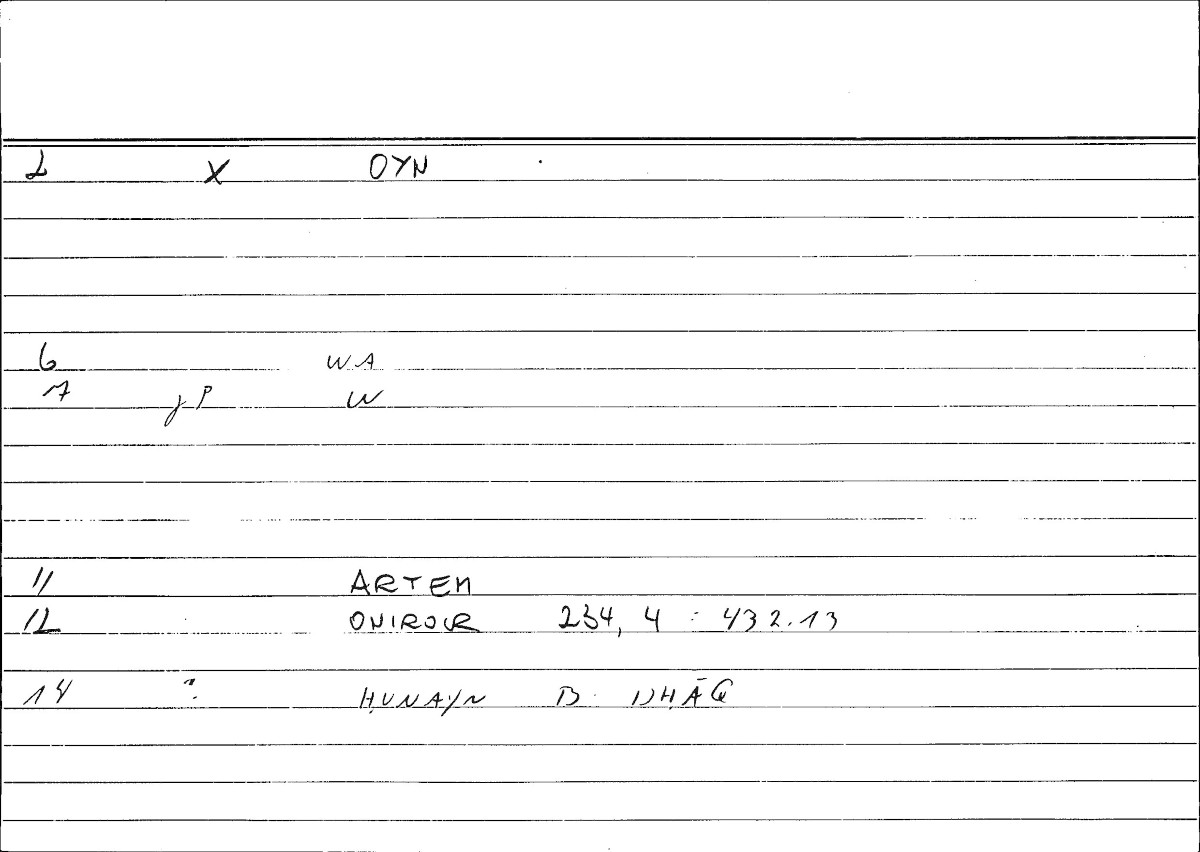 2 X OYN
6 WA
7 γP W
11 ARTEM
12 ONIROCR 234, 4 : 432.13
14 ? ḤUNAYN B. ISḤĀQ